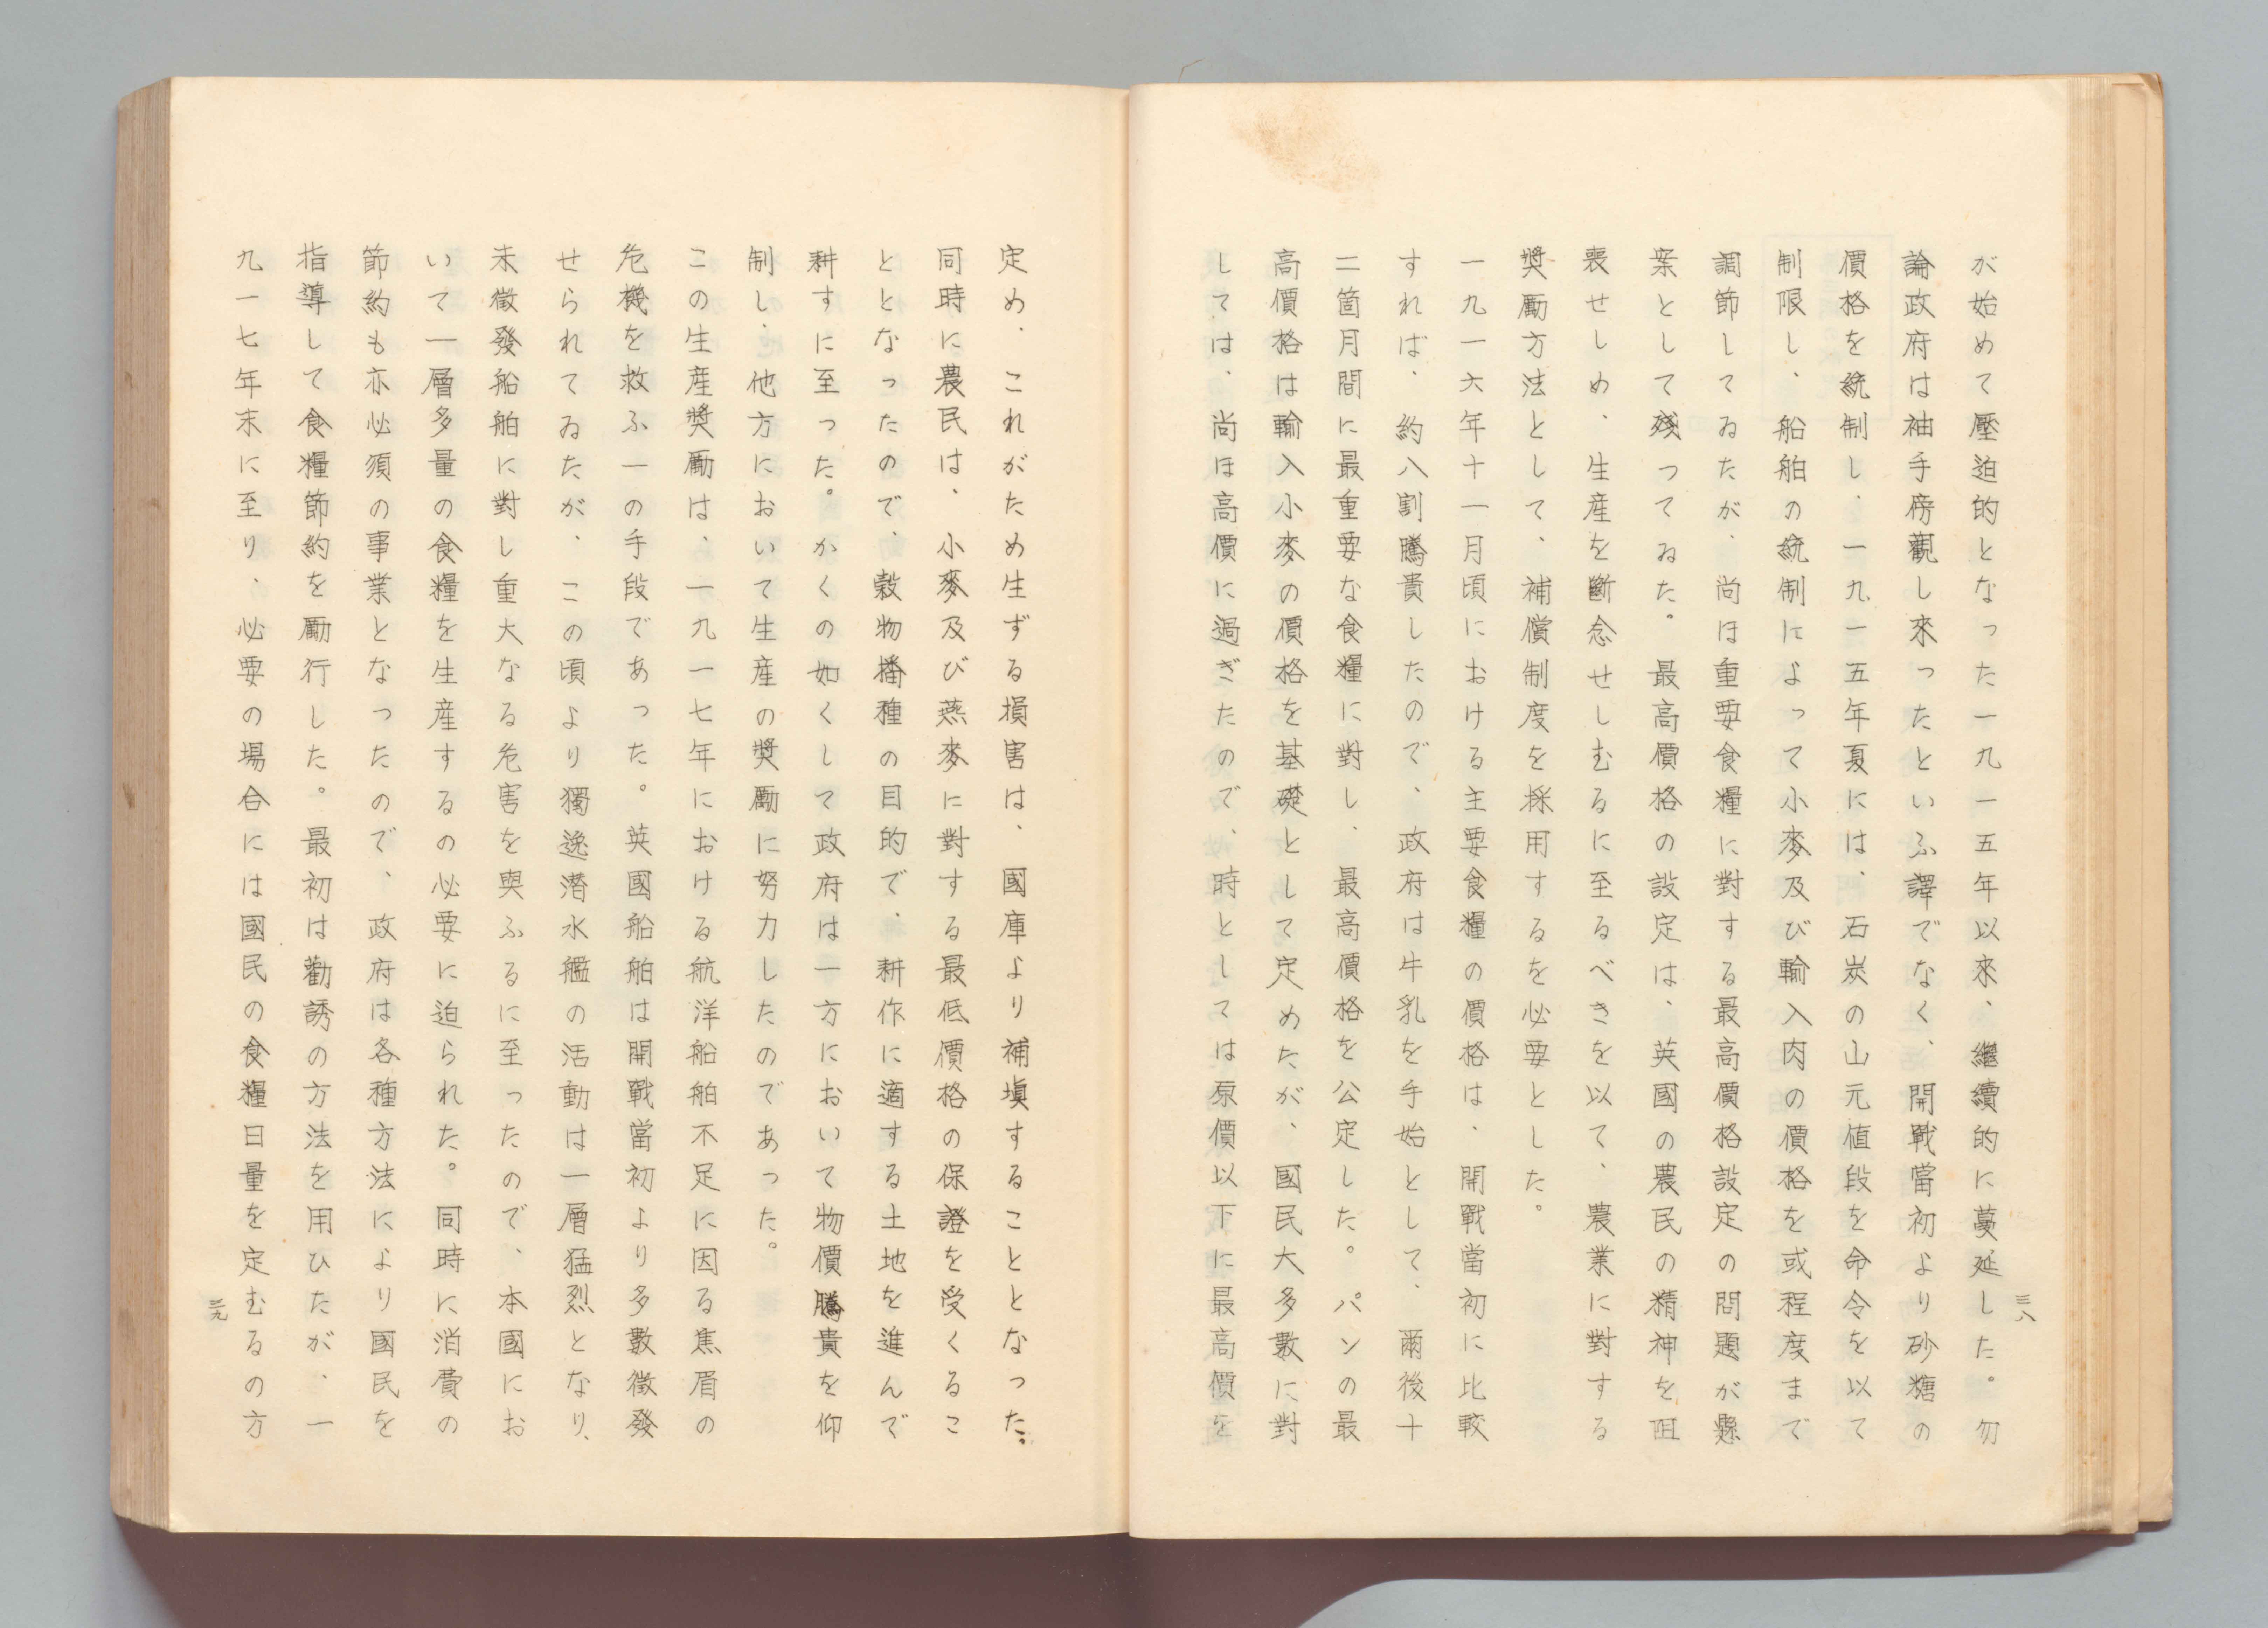 が始めて壓迫的となった一九一五年以來、繼續的に蔓延した。勿
論政府は袖手傍觀し來ったといふ譯でなく、開戰當初より砂糖の
價格を統制し、一九一五年夏には、石炭の山元値段を命令を以て
制限し、船舶の統制によって小麥及び輸入肉の價格を或程度まで
調節してゐたが、尚ほ重要食糧に對する最高價格設定の問題が懸
案として殘ってゐた。最高價格の設定は、英國の農民の精神を阻
喪せしめ、生産を斷念せしむるに至るべきを以て、農業に對する
奬勵方法として、補償制度を採用するを必要とした。
一九一六年十一月頃における主要食糧の價格は、開戰當初に比較
すれば、約八割騰貴したので、政府は牛乳を手始として、爾後十
二箇月間に最重要な食糧に對し、最高價格を公定した。パンの最
高價格は輸入小麥の價格を基礎として定めたが、國民大多數に對
しては、尚ほ高價に過ぎたので、時としては原價以下に最高價を
三八
定め、これがため生ずる損害は、國庫より補塡することとなった。
同時に農民は、小麥及び燕麥に對する最低價格の保證を受くるこ
ととなったので、穀物播種の目的で、耕作に適する土地を進んで
耕すに至った。かくの如くして政府は一方において物價騰貴を仰
制し、他方において生産の奬勵に努力したのであった。
この生産奬勵は、一九一七年における航洋船舶不足に因る焦眉の
危機を救ふ一の手段であった。英國船舶は開戰當初より多數徵發
せられてゐたが、この頃より獨逸潛水艦の活動は一層猛烈となり、
未徵發船舶に對し重大なる危害を與ふるに至ったので、本國にお
いて一層多量の食糧を生産するの必要に迫られた。同時に消費の
節約も亦必須の事業となったので、政府は各種方法により國民を
指導して食糧節約を勵行した。最初は勸誘の方法を用ひたが、一
九一七年末に至り、必要の場合には國民の食糧日量を定むるの方
三九